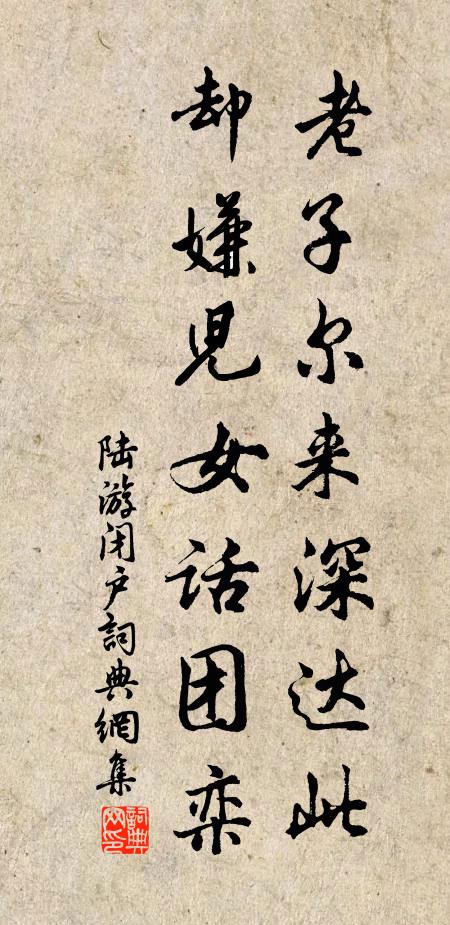 老子尔来深达此
却嫌儿女话团栾
陆游闭户詞典網集
詞典网印